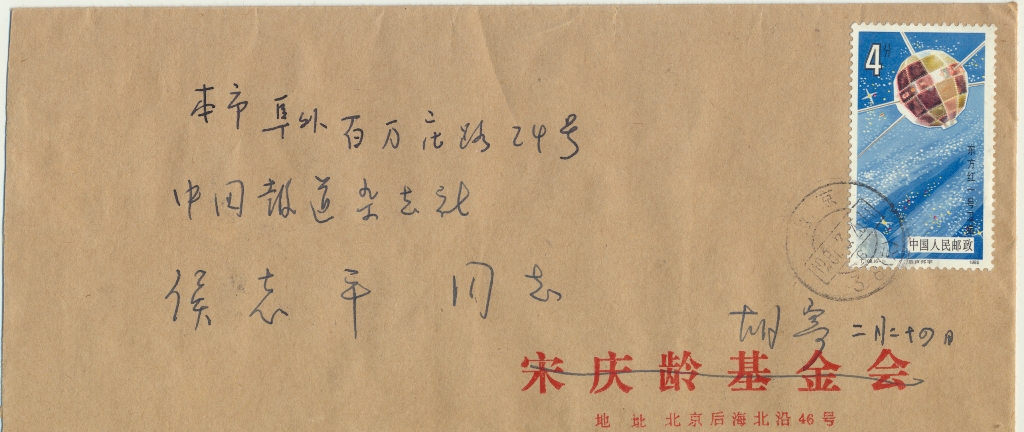 本市阜外百万庄路24号
中国报道杂志社
侯志平 同志
4分
东方红一号卫星
中国人民邮政
胡寄 二月二十四日
宋庆龄基金会
地址 北京后海北沿46号